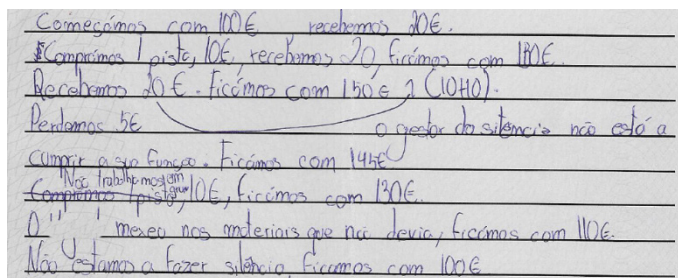 Começámos com 100€ recebemos 20€.
Comprámos 1 pista, 10€, recebemos 20, ficámos com 130€.
Recebemos 20€. Ficámos com 150€ (10+10).
Perdemos 5€ o gestor do silêncio não está a
cumprir a sua função. Ficámos com 145€
Não trabalhamos em grupo
Comprámos 1 pista, 10€, ficámos com 130€.
O " " mexeu nos materiais que não devia, ficámos com 110€.
Não estamos a fazer silêncio, ficamos com 100€